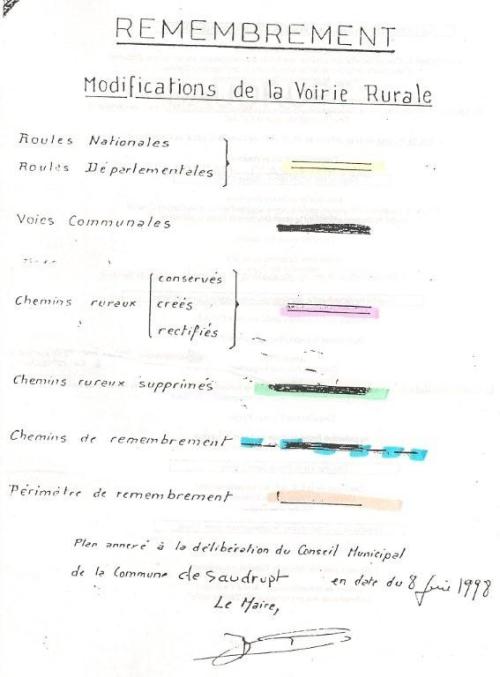 REMEMBREMENT
Modifications de la Voirie Rurale
Routes Nationales
Routes Départementales
Voies Communales
Chemins ruraux
conservés
créés
rectifiés
Chemins ruraux supprimés
Chemins de remembrement
Périmètre de remembrement
Plan annexé à la délibération du Conseil Municipal
de la Commune de Saudrupt en date du 8 1998
Le Maire,